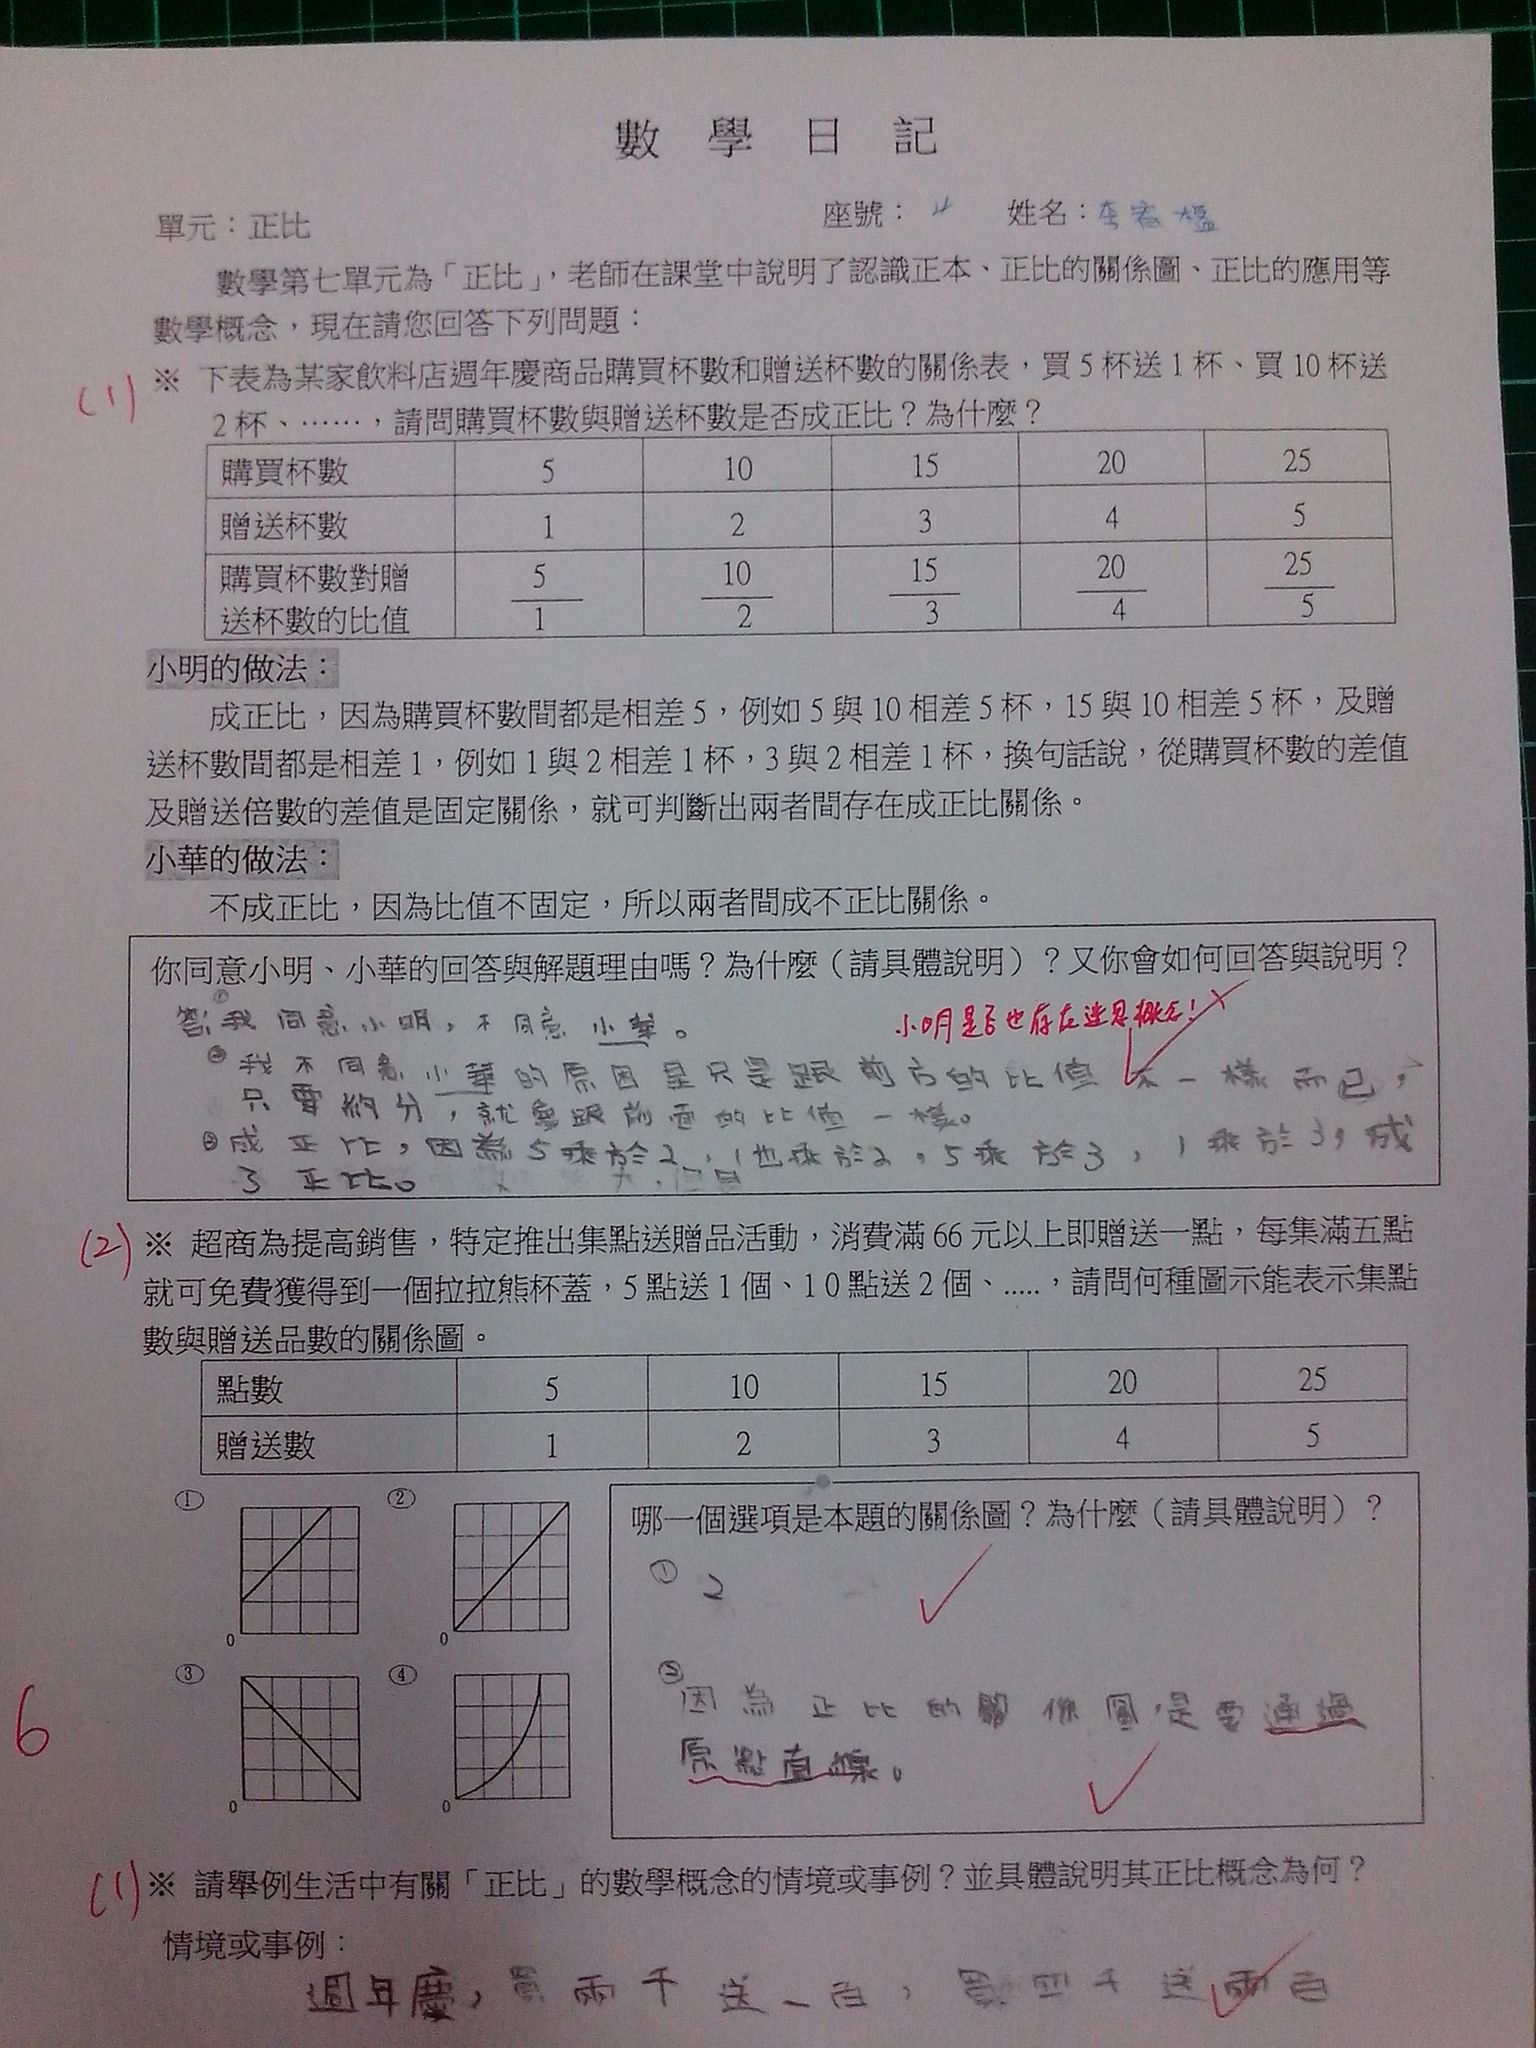 數學日記
單元：正比 座號：4 姓名：李
數學第七單元為「正比」，老師在課堂中說明了認識正本、正比的關係圖、正比的應用等
數學概念，現在請您回答下列問題：
(1) ※ 下表為某家飲料店週年慶商品購買杯數和贈送杯數的關係表，買5杯送1杯、買10杯送
2杯、……，請問購買杯數與贈送杯數是否成正比？為什麼？
購買杯數 5 10 15 20 25
贈送杯數 1 2 3 4 5
購買杯數對贈 5 10 15 20 25
送杯數的比值 1 2 3 4 5
小明的做法：
成正比，因為購買杯數間都是相差5，例如5與10相差5杯，15與10相差5杯，及贈
送杯數間都是相差1，例如1與2相差1杯，3與2相差1杯，換句話說，從購買杯數的差值
及贈送倍數的差值是固定關係，就可判斷出兩者間存在成正比關係。
小華的做法：
不成正比，因為比值不固定，所以兩者間成不正比關係。
你同意小明、小華的回答與解題理由嗎？為什麼（請具體說明）？又你會如何回答與說明？
答:①我同意小明，不同意小華。
小明是否也存在迷思概念!
②我不同意小華的原因是只是跟前方的比值不一樣而已，
只要約分，就會跟前面的比值一樣。
③成正比，因為5乘於2，1也乘於2，5乘於3，1乘於3，成
了正比。
(2) ※ 超商為提高銷售，特定推出集點送贈品活動，消費滿66元以上即贈送一點，每集滿五點
就可免費獲得到一個拉拉熊杯蓋，5點送1個、10點送2個、.....，請問何種圖示能表示集點
數與贈送品數的關係圖。
點數 5 10 15 20 25
贈送數 1 2 3 4 5
① ②
0 0
③ ④
0 0
哪一個選項是本題的關係圖？為什麼（請具體說明）？
① 2
② 因為正比的關係圖是要通過
原點直線。
6
(1) ※ 請舉例生活中有關「正比」的數學概念的情境或事例？並具體說明其正比概念為何？
情境或事例：
週年慶，買兩千送一百，買四千送兩百